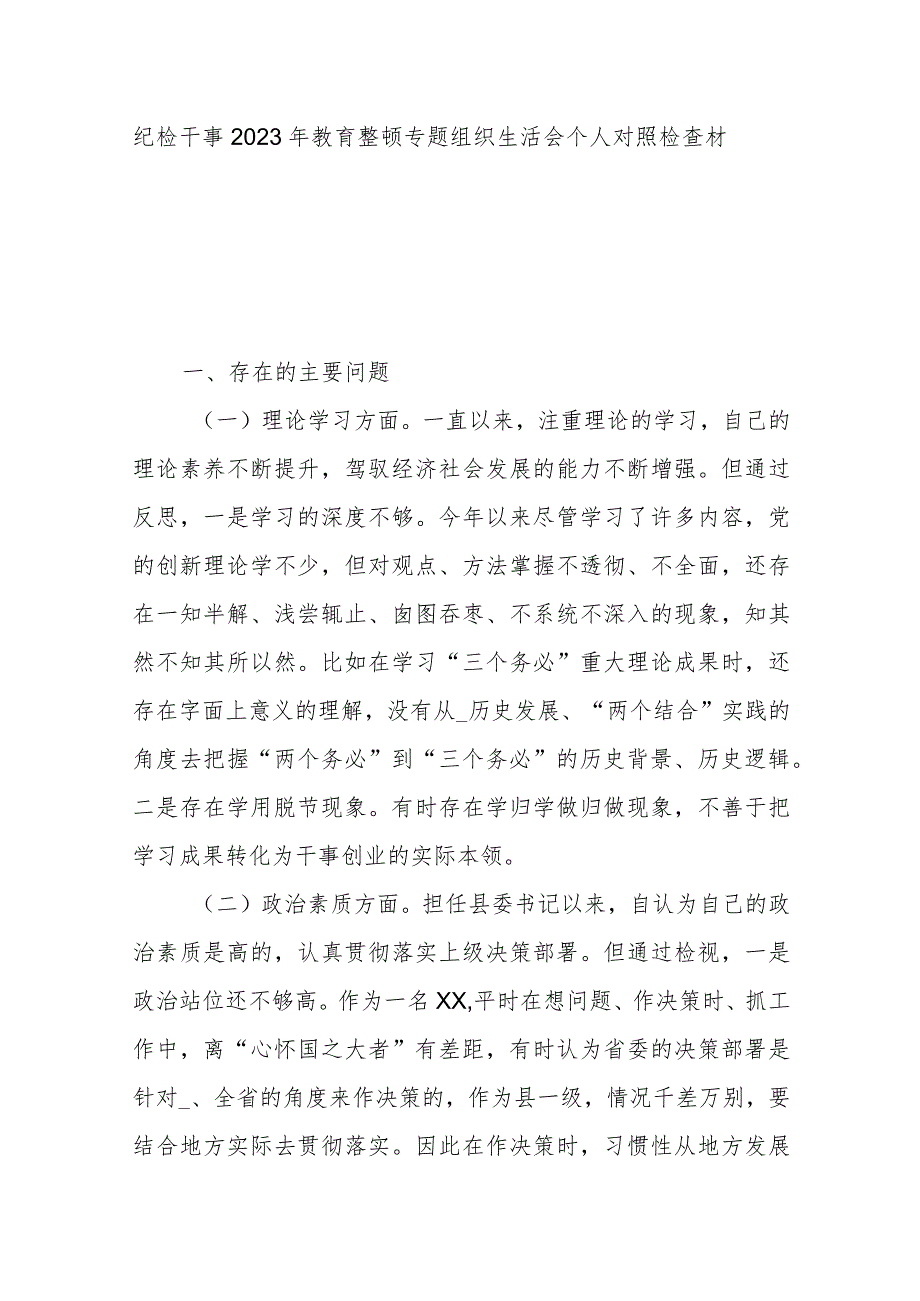 纪检干事 2023 年教育整顿专题组织生活会个人对照检查材
一、存在的主要问题
（一）理论学习方面。一直以来，注重理论的学习，自己的
理论素养不断提升，驾驭经济社会发展的能力不断增强。但通过
反思，一是学习的深度不够。今年以来尽管学习了许多内容，党
的创新理论学不少，但对观点、方法掌握不透彻、不全面，还存
在一知半解、浅尝辄止、囱图吞枣、不系统不深入的现象，知其
然不知其所以然。比如在学习“三个务必”重大理论成果时，还
存在字面上意义的理解，没有从_历史发展、“两个结合”实践的
角度去把握“两个务必”到“三个务必”的历史背景、历史逻辑。
二是存在学用脱节现象。有时存在学归学做归做现象，不善于把
学习成果转化为干事创业的实际本领。
（二）政治素质方面。担任县委书记以来，自认为自己的政
治素质是高的，认真贯彻落实上级决策部署。但通过检视，一是
政治站位还不够高。作为一名 XX,平时在想问题、作决策时、抓工
作中，离“心怀国之大者”有差距，有时认为省委的决策部署是
针对_、全省的角度来作决策的，作为县一级，情况千差万别，要
结合地方实际去贯彻落实。因此在作决策时，习惯性从地方发展